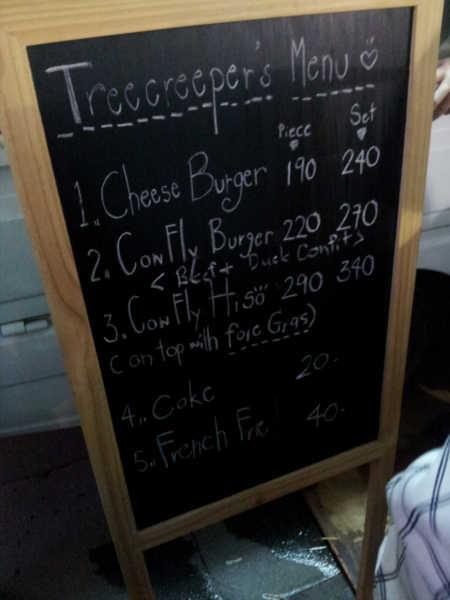 Treecreeper's Menu
Piece Set
1. Cheese Burger 190 240
2. Cow Fly Burger 220 270
< Beef + Duck Confit >
3. Cow Fly HiSo 290 340
(on top with foie Gras)
4.. Coke 20.-
5.. French Fries 40.-